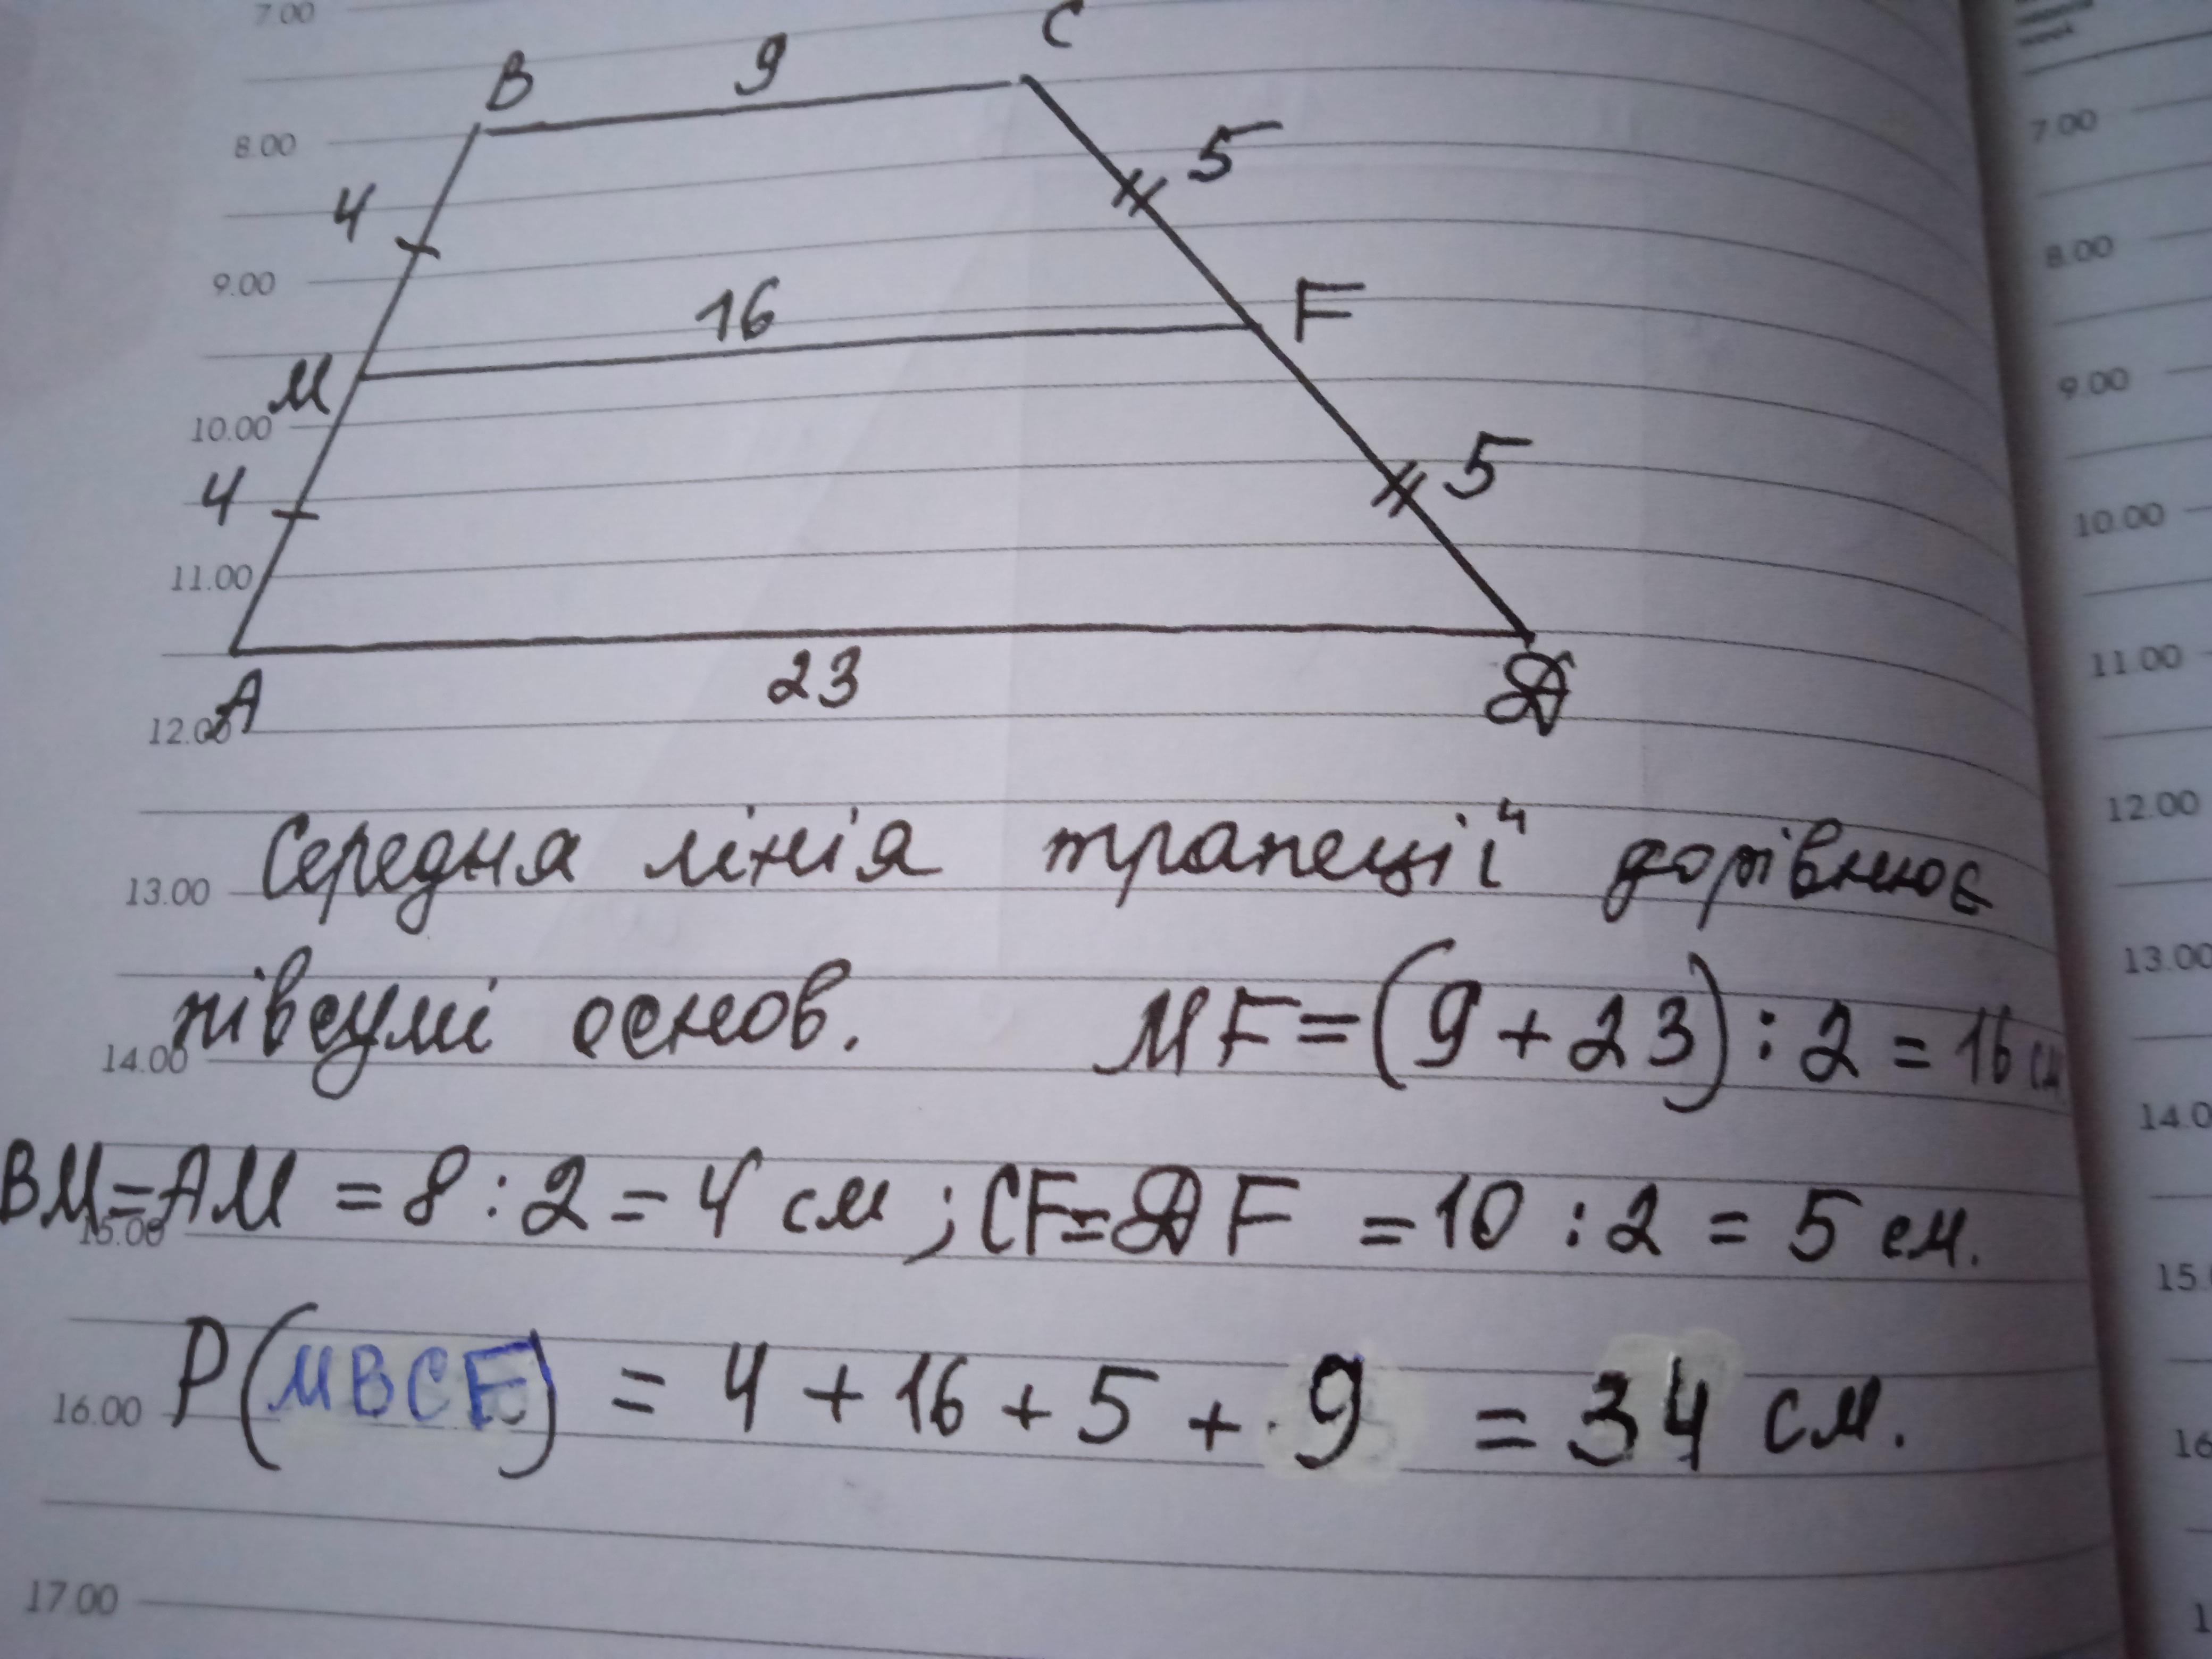 7.00
B 9 C
8.00
4 5
9.00
16 F
M
10.00
4 5
11.00
A 23 D
12.00
Середня лінія трапеції дорівнює
13.00
півсумі основ. MF=(9+23):2=16 см
14.00
BM=AM=8:2=4 см; CF=DF=10:2=5 см.
15.00
P(MBCF)=4+16+5+9=34 см.
16.00
17.00
7.00
8.00
9.00
10.00
11.00
12.00
13.00
14.0
15.
16
1